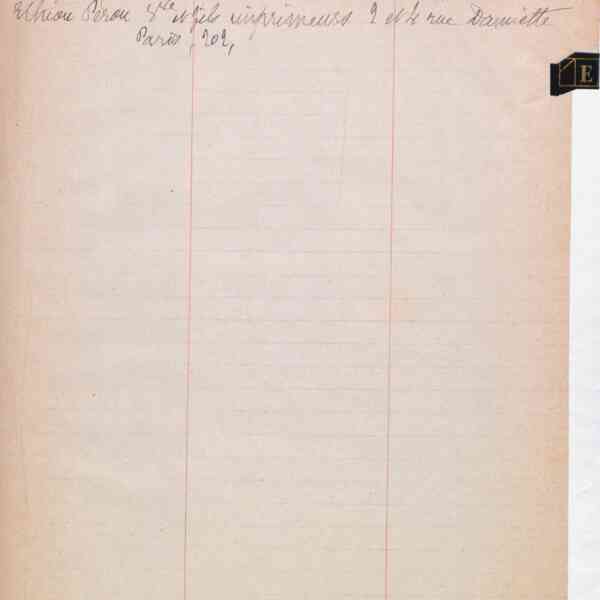 Ethiou Pérou Vve et fils imprimeurs 2 et 4 rue Damiette
Paris, 202,
E